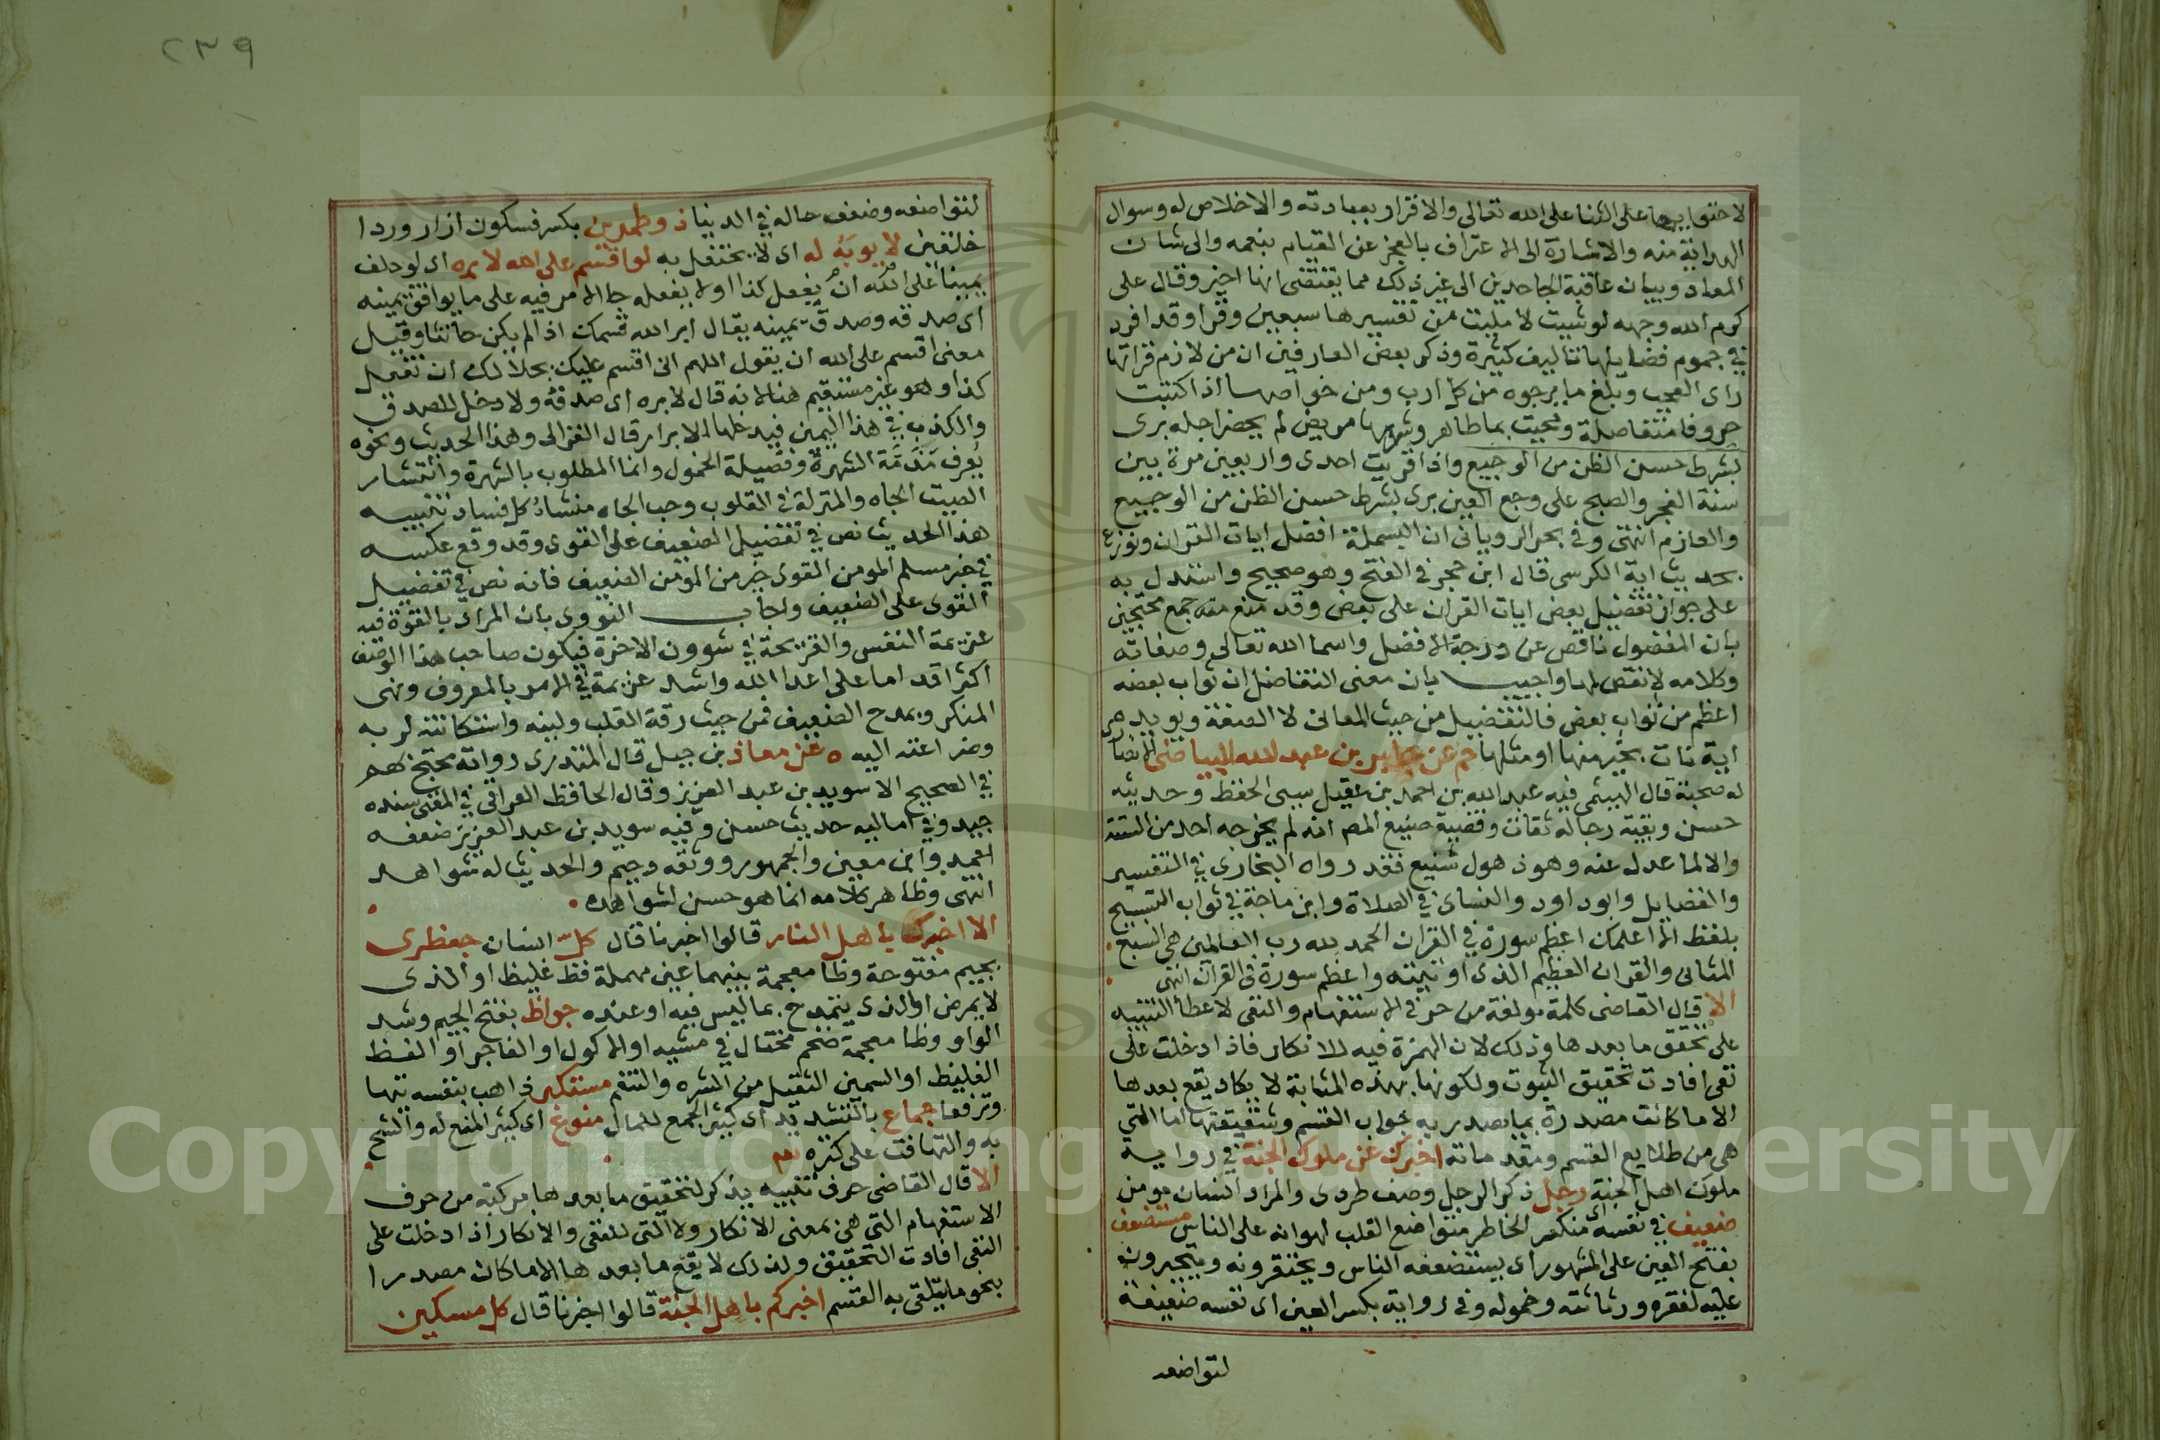 لاحتوايها على الثنا على الله تعالى والاقرار بعبادته والاخلاص له وسوال
الهداية منه والاشارة الى الاعتراف بالعجز عن القيام بنعمه والى شان
المعاد وبيان عاقبة الجاحدين الى غير ذلك مما يقتضى انها اخير وقال على
كرم الله وجهه لو شيت لامليت من تفسيرها سبعين وقرا وقد افرد
في جموم فضايلها تاليف كثيرة وذكر بعض العارفين ان من لازم قراتها
راى العجب وبلغ ما يرجوه من كل ارب ومن خواصها اذا كتبت
حروفا متفاصلة ومحيت بما طاهر وشربها مريض لم يحضر اجله برى
بشرط حسن الظن من الوجيع واذا قريت احدى واربعين مرة بين
سنة الفجر والصبح على وجع العين برى بشرط حسن الظن من الوجيع
والعازم انتهى وفي بحر الرويانى ان البسملة افضل ايات القران ونوزع
بحديث اية الكرسى قال ابن حجر في الفتح وهو صحيح واستدل به
على جواز تفضيل بعض ايات القران على بعض وقد منع منه جمع محتجين
بان المفضول ناقص عن درجة الافضل واسما الله تعالى وصفاته
وكلامه لا نقص لها واجيب بان معنى التفاضل ان ثواب بعضه
اعظم من ثواب بعض فالتفضيل من حيث المعانى لا الصفة ويويده
اية نات بخير منها او مثلها حم عن جابر بن عبد الله البياضى الانصا
له صحبة قال الهيثمى فيه عبد الله بن احمد بن عقيل سيى الحفظ وحديثه
حسن وبقية رجاله ثقات وقضية صنيع المص انه لم يخرجه احد من الستة
والا لما عدل عنه وهو ذهول شنيع فقد رواه البخارى في التفسير
والفضايل وابو داود والنساى في الصلاة وابن ماجة في ثواب التسبيح
بلفظ الا اعلمك اعظم سورة في القران الحمد لله رب العالمين هي السبع
المثانى والقران العظيم الذى اوتيته واعظم سورة فى القران انتهى
الا قال القاضى كلمة مولفة من حرفي الاستفهام والنفى لاعطا التنبيه
على تحقق ما بعدها وذلك لان الهمزة فيه للانكار فاذا دخلت على
نفى افادت تحقيق الثبوت ولكونها بهذه المثابة لا يكاد يقع بعدها
الا ما كانت مصدرة بما يصدر به جواب القسم وشقيقتها اما التي
هى من طلايع القسم ومقدماته اخبرك عن ملوك الجنة في رواية
ملوك اهل الجنة رجل ذكر الرجل وصف طردى والمراد انسان مومن
ضعيف في نفسه اى منكسر الخاطر متواضع القلب لهوانه على الناس مستضعف
بفتح العين على المشهور اى يستضعفه الناس ويحتقرونه ويتجبرون
عليه لفقره ورثاثته وخموله وفى رواية بكسر العين اى نفسه ضعيفة
لتواضعه
٢٣٩
لتواضعه وضعف حاله في الدنيا ذو طمرين بكسر فسكون ازار وردا
خلقين لا يوبه له اى لا يحتفل به لو اقسم على الله لابره اى لو حلف
يمينا على الله ان يفعل كذا اولا يفعله جا الامر فيه على ما يوافق يمينه
اى صدقه وصدق يمينه يقال ابر الله قسمك اذا لم يكن حانثا وقيل
معنى اقسم على الله ان يقول اللهم انى اقسم عليك بجلالك ان تفعل
كذا وهو غير مستقيم هنا لانه قال لابره اى صدقه ولا دخل للصدق
والكذب في هذا اليمين فيدخلها الابرار قال الغزالى وهذا الحديث ونحوه
يعرف مذمة الشهرة وفضيلة الخمول وانما المطلوب بالشهرة وانتشار
الصيت الجاه والمنزلة في القلوب وحب الجاه منشا كل فساد تنبيه
هذا الحديث نص في تفضيل الضعيف على القوى وقد وقع عكسه
في خبر مسلم المومن القوى خير من المؤمن الضعيف فانه نص في تفضيل
القوى على الضعيف واجاب النووى بان المراد بالقوة فيه
عزيمة النفس والقريحة في شوون الاخرة فيكون صاحب هذا الوصف
اكثر اقداما على اعدا الله واشد عزيمة في الامر بالمعروف ونهى
المنكر ويمدح الضعيف فمن حيث رقة القلب ولينه واستكانته لربه
وضراعته اليه ه عن معاذ بن جبل قال المنذرى رواته محتج بهم
في الصحيح الا سويد بن عبد العزيز وقال الحافظ العراقى في المغنى سنده
جيد وفي اماليه حديث حسن وفيه سويد بن عبد العزيز ضعفه
احمد وابن معين والجمهور ووثقه دحيم والحديث له شواهد
انتهى وظاهر كلامه انما هو حسن لشواهده
الا اخبرك باهل النار قالوا اخبرنا قال كل انسان جعظرى
بجيم مفتوحة وظا معجمة بينهما عين مهملة فظ غليظ او الذى
لا يمرض اوالذى يتمدح بما ليس فيه او عنده جواظ بفتح الجيم وشد
الواو وظا معجمة ضخم مختال في مشيه او الاكول او الفاجر او الفظ
الغليظ او السمين الثقيل من الشره والتنعم مستكبر ذاهب بنفسه تيها
وترفعا جماع بالتشديد اى كثير الجمع للمال منوع اى كثير المنع له والشح
به والتهافت على كنزه
الا قال القاضى حرف تنبيه يذكر لتحقيق ما بعدها مركبة من حرف
الاستفهام التي هي بمعنى الانكار ولا التى للنفى والانكار اذا دخلت على
النفى افادت التحقيق ولذلك لا يقع ما بعدها الا ما كان مصدرا
بنحو ما يتلقى به القسم اخبركم باهل الجنة قالوا اخبرنا قال كل مسكين
Copyright © King Saud University